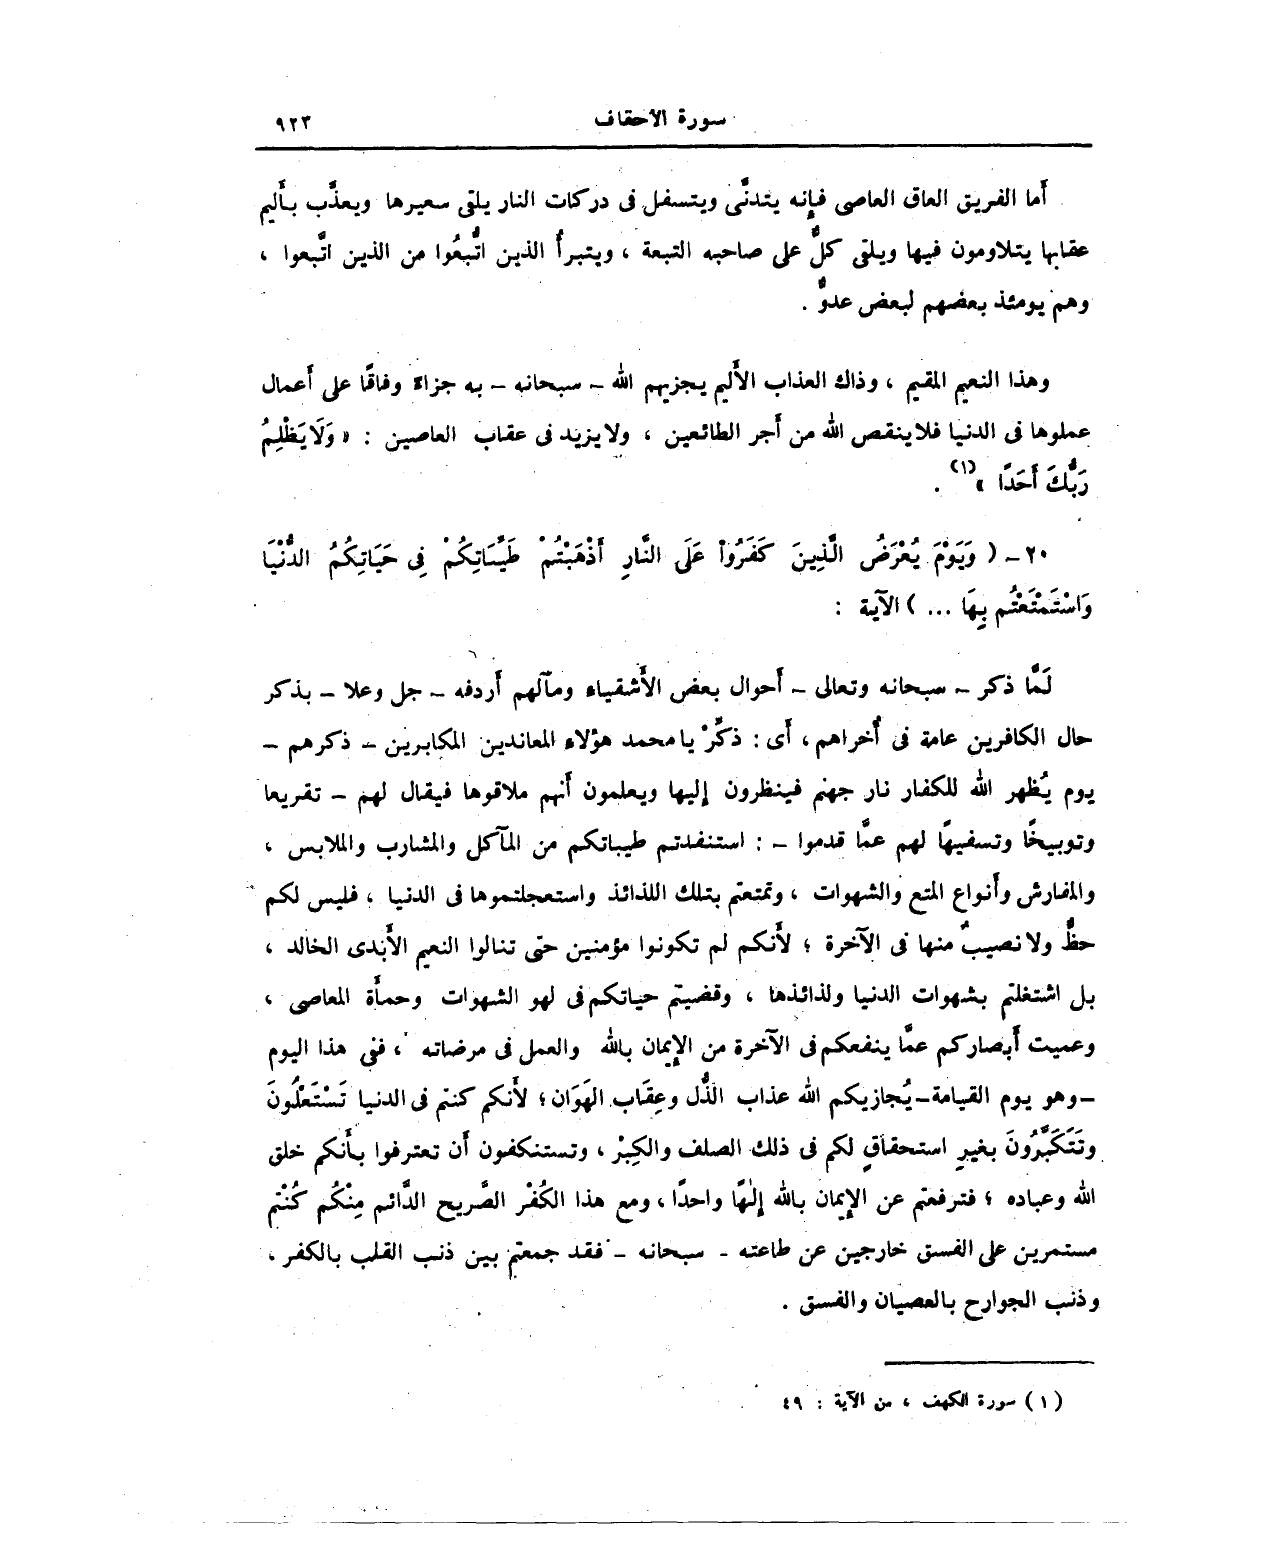 سورة الأحقاف ٩٢٣
أما الفريق العاق العاصى فإنه يتدنَّى ويتسفل فى دركات النار يلقى سعيرها ويعذَّب بأليم
عقابها يتلاومون فيها ويلقى كلٌّ على صاحبه التبعة ، ويتبرأُ الذين اتُّبعُوا من الذين اتَّبعوا ،
وهم يومئذ بعضهم لبعض عدوٌّ .
وهذا النعيم المقيم ، وذاك العذاب الأَليم يجزيهم الله – سبحانه – به جزاءً وفاقًا على أَعمال
عملوها فى الدنيا فلا ينقص الله من أَجر الطائعين ، ولا يزيد فى عقاب العاصين : « وَلَا يَظْلِمُ
رَبُّكَ أَحَدًا »(١) .
٢٠ – ( وَيَوْمَ يُعْرَضُ الَّذِينَ كَفَرُواْ عَلَى النَّارِ أَذْهَبْتُمْ طَيِّبَاتِكُمْ فِى حَيَاتِكُمُ الدُّنْيَا
وَاسْتَمْتَعْتُم بِهَا ... ) الآية :
لَمَّا ذكر – سبحانه وتعالى – أَحوال بعض الأَشقياء ومآلهم أَردفه – جل وعلا – بذكر
حال الكافرين عامة فى أُخراهم ، أَى : ذكِّرْ يا محمد هؤلاء المعاندين المكابرين – ذكرهم –
يوم يُظهر الله للكفار نار جهنم فينظرون إليها ويعلمون أَنهم ملاقوها فيقال لهم – تقريعا
وتوبيخًا وتسفيهًا لهم عمَّا قدموا – : استنفدتم طيباتكم من المآكل والمشارب والملابس ،
والمفارش وأَنواع المتع والشهوات ، وتمتعتم بتلك اللذائذ واستعجلتموها فى الدنيا ، فليس لكم
حظٌّ ولا نصيبٌ منها فى الآخرة ؛ لأَنكم لم تكونوا مؤمنين حتى تنالوا النعيم الأَبدى الخالد ،
بل اشتغلتم بشهوات الدنيا ولذائذها ، وقضيتم حياتكم فى لهو الشهوات وحمأَة المعاصى ،
وعميت أَبصاركم عمَّا ينفعكم فى الآخرة من الإيمان بالله والعمل فى مرضاته ، ففى هذا اليوم
– وهو يوم القيامة – يُجازيكم الله عذاب الذُّل وعِقَاب الهَوَان ؛ لأَنكم كنتم فى الدنيا تَسْتَعْلُونَ
وتَتَكَبَّرُونَ بغيرِ استحقاقٍ لكم فى ذلك الصلف والكِبْر ، وتستنكفون أَن تعترفوا بأَنكم خلق
الله وعباده ؛ فترفعتم عن الإيمان بالله إلٰهًا واحدًا ، ومع هذا الكُفْر الصَّريح الدَّائم مِنْكُم كُنْتم
مستمرين على الفسق خارجين عن طاعته – سبحانه – فقد جمعتم بين ذنب القلب بالكفر ،
وذنب الجوارح بالعصيان والفسق .
(١) سورة الكهف ، من الآية : ٤٩